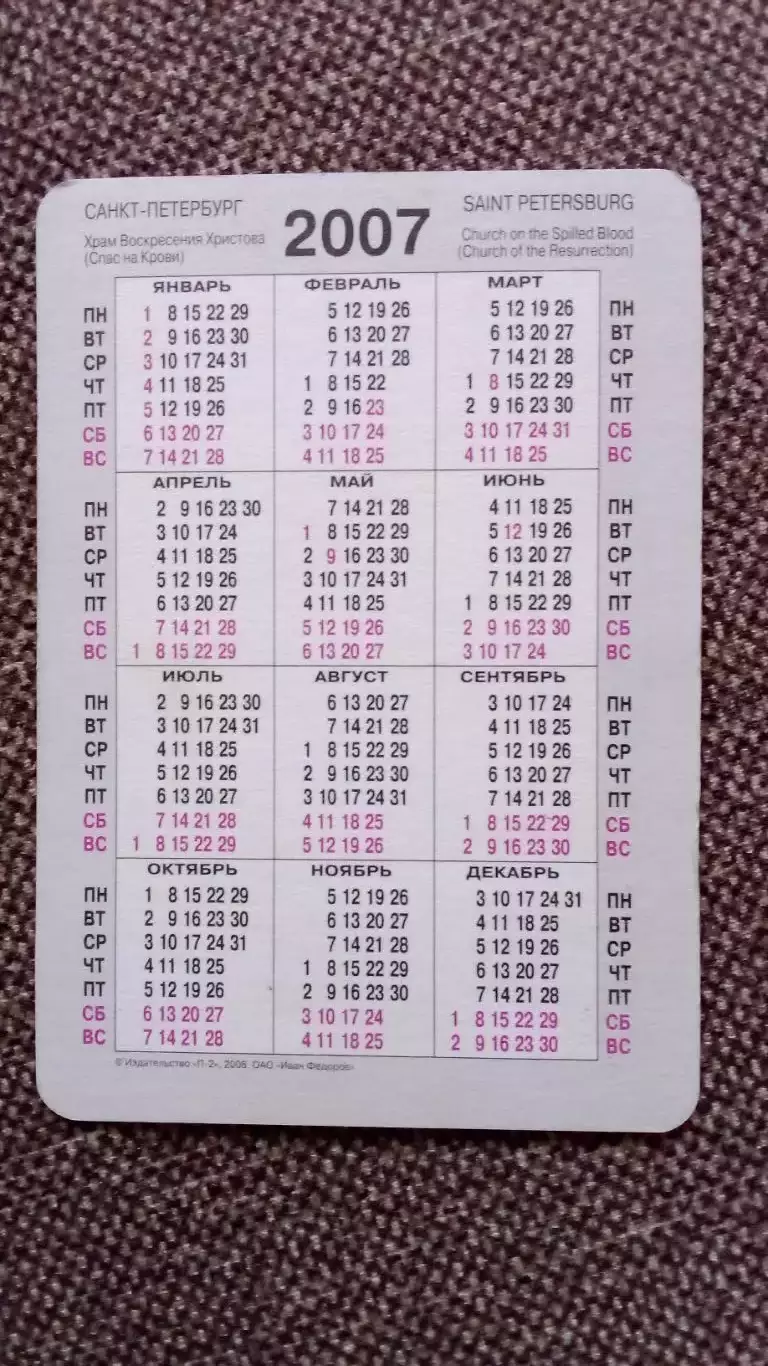 САНКТ-ПЕТЕРБУРГ 2007 SAINT PETERSBURG
Храм Воскресения Христова Church on the Spilled Blood
(Спас на Крови) (Church of the Resurrection)
ЯНВАРЬ ФЕВРАЛЬ МАРТ
ПН 1 8 15 22 29 5 12 19 26 5 12 19 26 ПН
ВТ 2 9 16 23 30 6 13 20 27 6 13 20 27 ВТ
СР 3 10 17 24 31 7 14 21 28 7 14 21 28 СР
ЧТ 4 11 18 25 1 8 15 22 1 8 15 22 29 ЧТ
ПТ 5 12 19 26 2 9 16 23 2 9 16 23 30 ПТ
СБ 6 13 20 27 3 10 17 24 3 10 17 24 31 СБ
ВС 7 14 21 28 4 11 18 25 4 11 18 25 ВС
АПРЕЛЬ МАЙ ИЮНЬ
ПН 2 9 16 23 30 7 14 21 28 4 11 18 25 ПН
ВТ 3 10 17 24 1 8 15 22 29 5 12 19 26 ВТ
СР 4 11 18 25 2 9 16 23 30 6 13 20 27 СР
ЧТ 5 12 19 26 3 10 17 24 31 7 14 21 28 ЧТ
ПТ 6 13 20 27 4 11 18 25 1 8 15 22 29 ПТ
СБ 7 14 21 28 5 12 19 26 2 9 16 23 30 СБ
ВС 1 8 15 22 29 6 13 20 27 3 10 17 24 ВС
ИЮЛЬ АВГУСТ СЕНТЯБРЬ
ПН 2 9 16 23 30 6 13 20 27 3 10 17 24 ПН
ВТ 3 10 17 24 31 7 14 21 28 4 11 18 25 ВТ
СР 4 11 18 25 1 8 15 22 29 5 12 19 26 СР
ЧТ 5 12 19 26 2 9 16 23 30 6 13 20 27 ЧТ
ПТ 6 13 20 27 3 10 17 24 31 7 14 21 28 ПТ
СБ 7 14 21 28 4 11 18 25 1 8 15 22 29 СБ
ВС 1 8 15 22 29 5 12 19 26 2 9 16 23 30 ВС
ОКТЯБРЬ НОЯБРЬ ДЕКАБРЬ
ПН 1 8 15 22 29 5 12 19 26 3 10 17 24 31 ПН
ВТ 2 9 16 23 30 6 13 20 27 4 11 18 25 ВТ
СР 3 10 17 24 31 7 14 21 28 5 12 19 26 СР
ЧТ 4 11 18 25 1 8 15 22 29 6 13 20 27 ЧТ
ПТ 5 12 19 26 2 9 16 23 30 7 14 21 28 ПТ
СБ 6 13 20 27 3 10 17 24 1 8 15 22 29 СБ
ВС 7 14 21 28 4 11 18 25 2 9 16 23 30 ВС
© Издательство «П-2», 2006. ОАО «Иван Федоров»